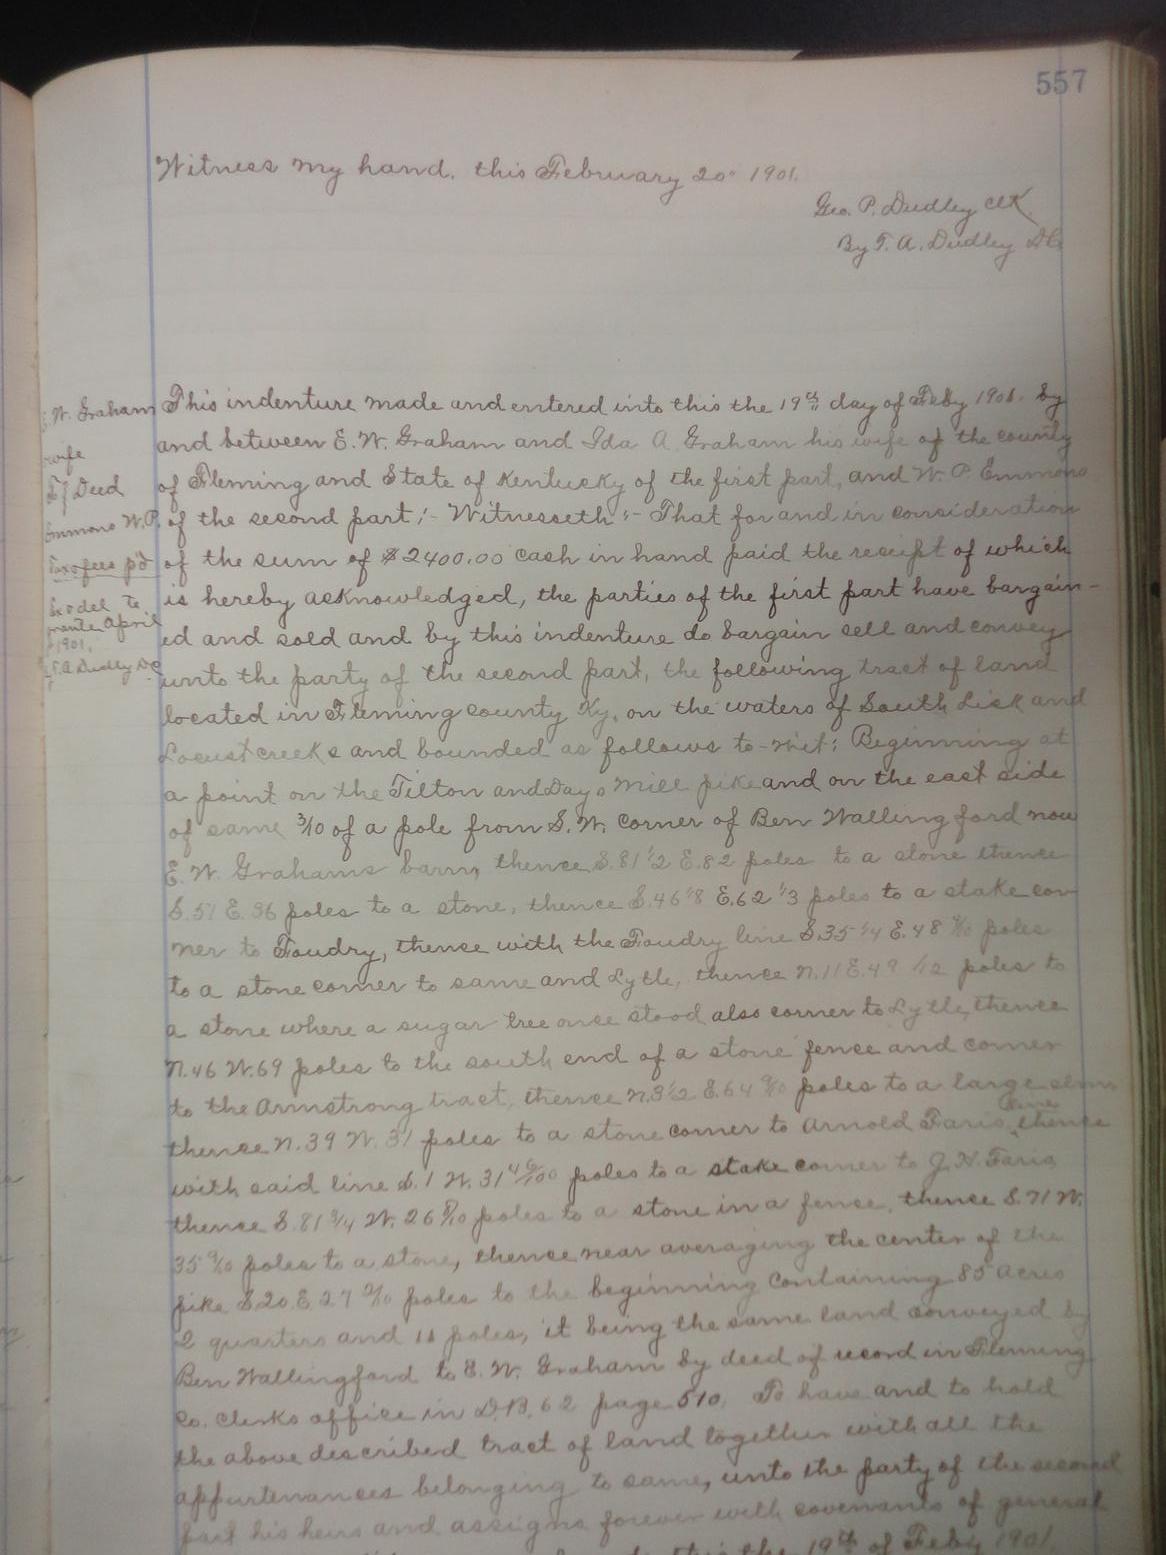 557
Witness my hand. this February 20" 1901.
Geo. P. Dudley Clk
By F. A. Dudley DC
E. W. Graham
wife
To/ Deed
Emmons W.P.
Tax & fees p'd
Ex & del to
grantee April
1901.
F. A Dudley DC
This indenture made and entered into this the 19th day of Feby 1901. by
and between E. W. Graham and Ida A. Graham his wife of the county
of Fleming and State of Kentucky of the first part, and W. P. Emmons
of the second part;- Witnesseth:- That for and in consideration
of the sum of $2400.00 cash in hand paid the receipt of which
is hereby acknowledged, the parties of the first part have bargain-
ed and sold and by this indenture do bargain sell and convey
unto the party of the second part, the following tract of land
located in Fleming county Ky, on the waters of South Lick and
Locust creeks and bounded as follows to-wit: Beginning at
a point on the Tilton and Days Mill pike and on the east side
of same 3/10 of a pole from S. W. corner of Ben Walling ford now
E. W. Grahams barn, thence S. 81 1/2 E. 82 poles to a stone thence
S. 51 E. 36 poles to a stone, thence S. 46 1/8 E. 62 1/3 poles to a stake cor
ner to Foudry, thence with the Foudry line S. 35 1/4 E. 48 poles
to a stone corner to same and Lytle, thence N. 11 E. 49 poles to
a stone where a sugar tree once stood also corner to Lytle, thence
N. 46 W. 69 poles to the south end of a stone fence and corner
to the Armstrong tract, thence N. 3 1/2 E. 64 9/10 poles to a large elm
thence N. 39 W. 31 poles to a stone corner to Arnold Faris line thence
with said line S. 1 W. 31 46/100 poles to a stake corner to J. N. Faris
thence S. 81 3/4 W. 26 poles to a stone in a fence, thence S. 71 W.
35 poles to a stone, thence near averaging the center of the
pike S. 20. E. 27 poles to the beginning containing 85 acres
2 quarters and 11 poles, it being the same land conveyed by
Ben Wallingford to E. W. Graham by deed of record in Fleming
Co. Clerks office in D.B. 62 page 510. To have and to hold
the above described tract of land together with all the
appurtenances belonging to same, unto the party of the second
part his heirs and assigns forever with covenants of general
this the 19th of Feby 1901.